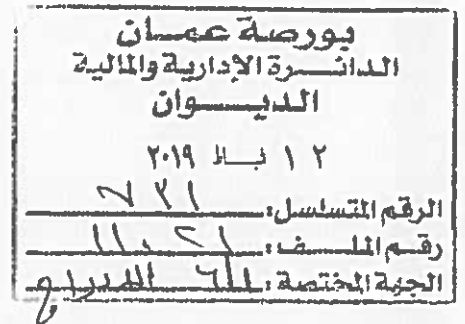 بورصة عمان
الدائرة الإدارية والمالية
الديوان
٢ ١ ـباط ٢٠١٩
الرقم المتسلسل:
رقم الملف:
الجهة المختصة: